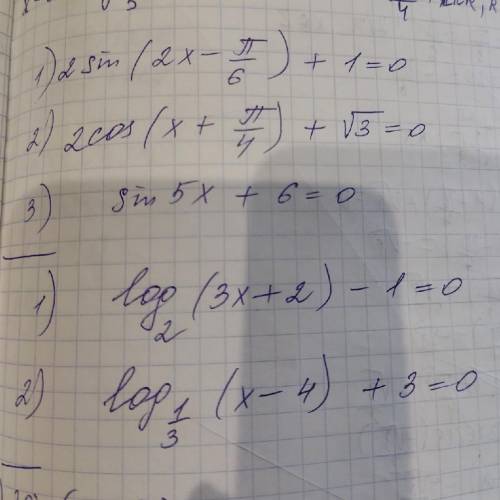 1) 2 sin (2x - π/6) + 1 = 0
2) 2cos (x + π/4) + √3 = 0
3) sin 5x + 6 = 0
1) log₂ (3x + 2) - 1 = 0
2) log_{1/3} (x - 4) + 3 = 0